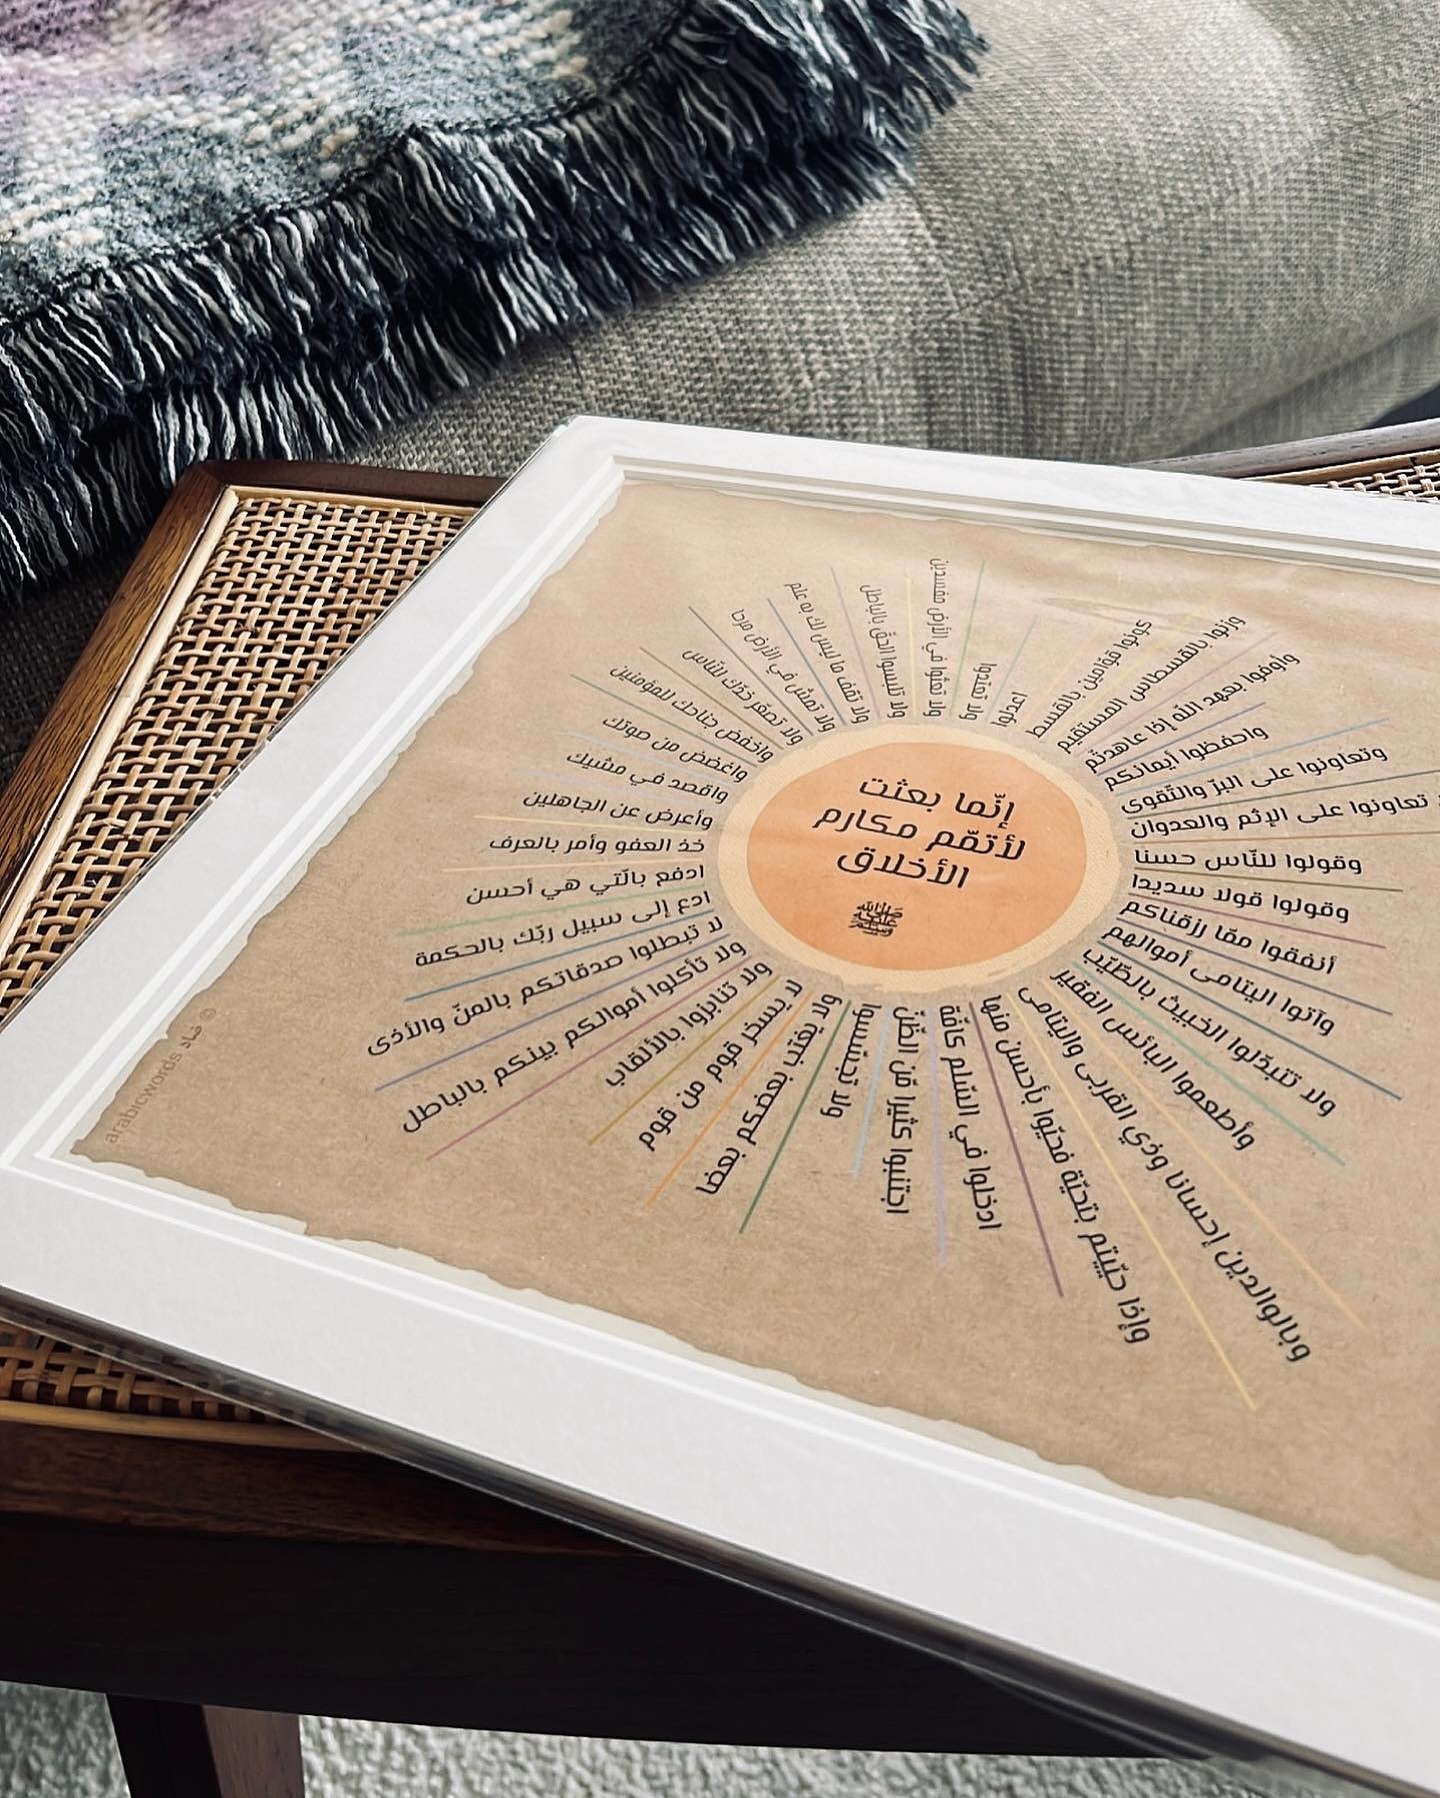 إنّما بعثت
لأتمّم مكارم
الأخلاق
ﷺ
اعدلوا
كونوا قوّامين بالقسط
وزنوا بالقسطاس المستقيم
وأوفوا بعهد الله إذا عاهدتّم
واحفظوا أيمانكم
وتعاونوا على البرّ والتّقوى
تعاونوا على الإثم والعدوان
وقولوا للنّاس حسنا
وقولوا قولا سديدا
أنفقوا ممّا رزقناكم
وآتوا اليتامى أموالهم
ولا تتبدّلوا الخبيث بالطّيّب
وأطعموا البائس الفقير
وبالوالدين إحسانا وذي القربى واليتامى
وإذا حيّيتم بتحيّة فحيّوا بأحسن منها
ادخلوا في السّلم كافّة
اجتنبوا كثيرا مّن الظّنّ
ولا تجسّسوا
ولا يغتب بعضكم بعضا
لا يسخر قوم من قوم
ولا تنابزوا بالألقاب
ولا تأكلوا أموالكم بينكم بالباطل
لا تبطلوا صدقاتكم بالمنّ والأذى
ادع إلى سبيل ربّك بالحكمة
ادفع بالّتي هي أحسن
خذ العفو وأمر بالعرف
وأعرض عن الجاهلين
واقصد في مشيك
واغضض من صوتك
واخفض جناحك للمؤمنين
ولا تصعّر خدّك للنّاس
ولا تمش في الأرض مرحا
ولا تقف ما ليس لك به علم
ولا تلبسوا الحقّ بالباطل
ولا تعثوا في الأرض مفسدين
ولا تعتدوا
arabicwords ضاد ©